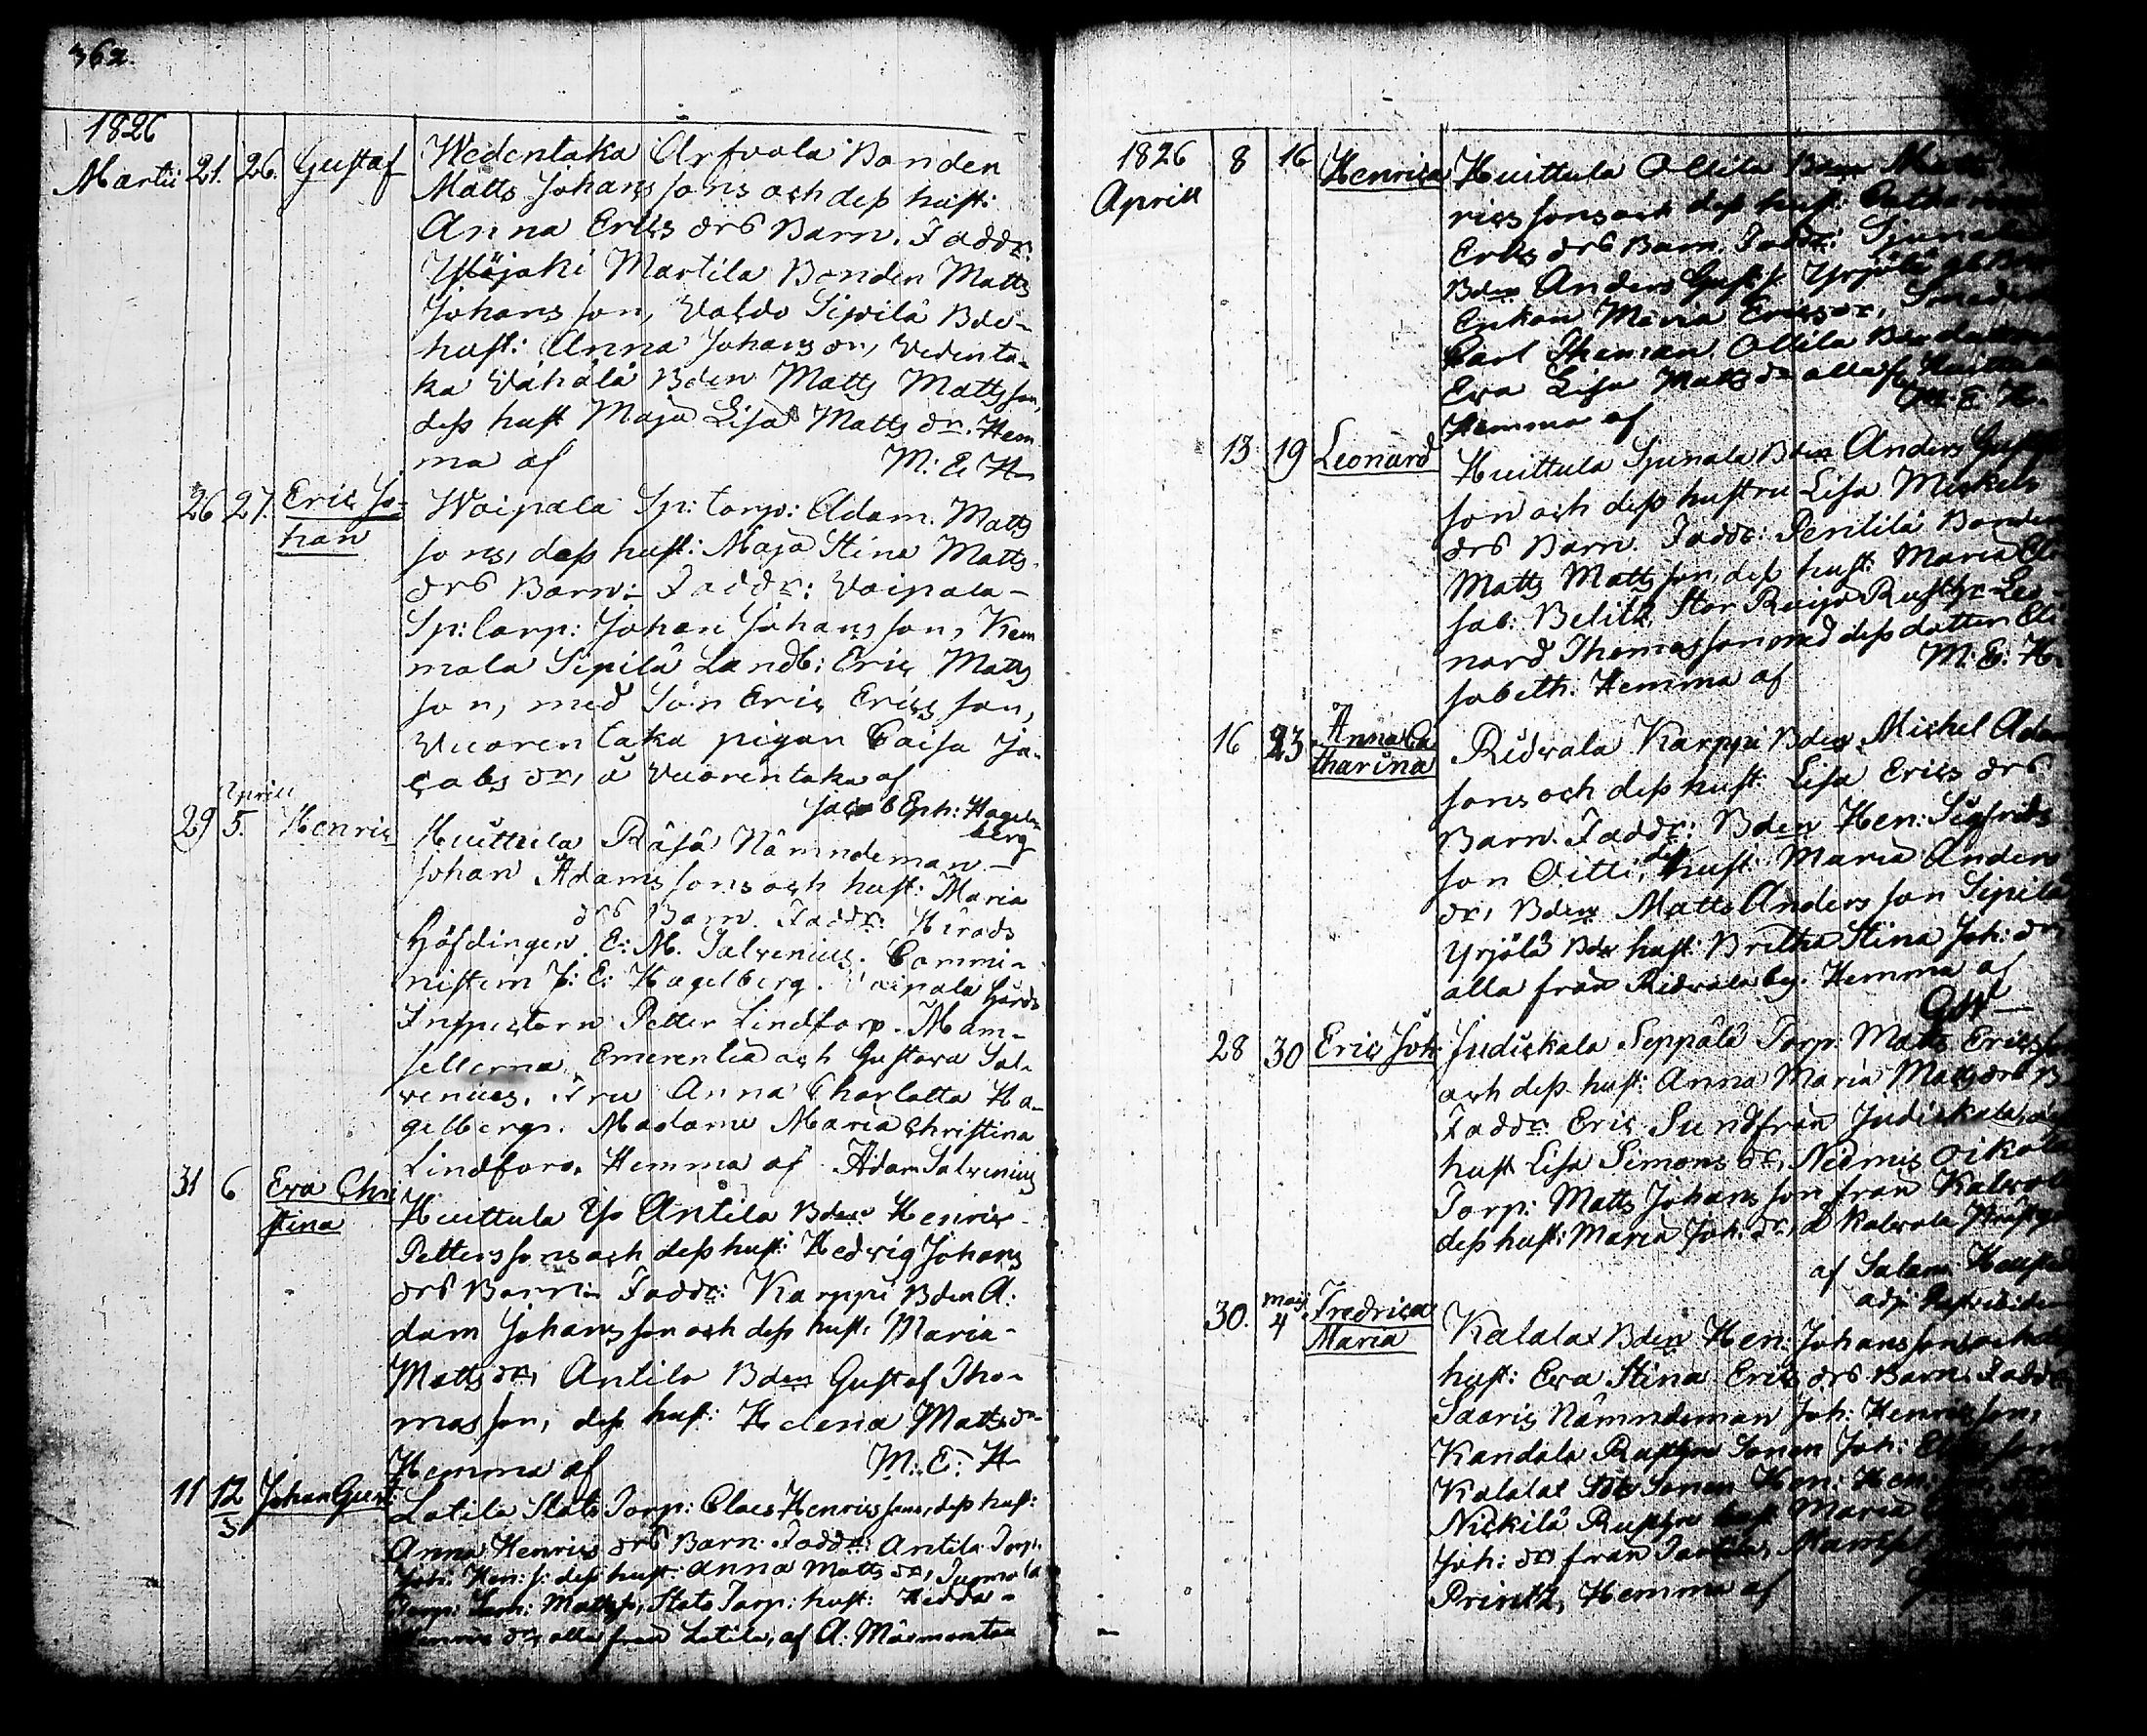 362.
1826
Martii 21. 26. Gustaf Wedentaka Arfvola Bonden
Matts Johans sons och dess hust:
Anna Erics drs Barn. Faddr:
Ylöjoki Martila Bonden Matts
Johans son, Valdo Sipilä Bde-
hust: Anna Johans dr, Vedenta-
ka Vähälä Bden Matts Matts son,
dess hust Maja Lisa Matts dr. Hem
ma af M: E. H-
26 27. Eric Jo- Woipala Sp: torp: Adam. Matts
han sons, dess hust: Maja Stina Matts
drs Barn: Faddr: Voipala-
Sp: torp: Johan Johans son, Kem
mala Sipilä Landb: Eric Matts
son, med Son Eric Erics son,
Vuorentaka pigan Caisa Ja-
cobs dr, å Vuorentaka af
Jacob Eph: Hagel-
berg
Aprill
29 5. Henric Huittula Räsä Nämndeman-
Johan Adams sons och hust: Maria
drs Barn. Faddr: Härads
Höfdingen. E: M. Salvenius. Commi-
nistern J: E: Hagelberg. Voipala Gårds
Inspectorn Petter Lindfors. Mam-
sellerna Emerentia och Gustava Sal-
venius. Fru Anna Charlotta Ha-
gelberg. Madame Maria Christina
Lindfors. Hemma af Adam Salvenius
31 6 Eva Chri Huittula Yso Antila Bden Henric-
stina Petters sons och dess hust: Hedvig Johans
drs Barn Faddr: Karppi Bden A:
dam Johans son och dess hust: Maria-
Matts dr, Antila Bden Gustaf Tho-
mas son, dess hust: Helena Matts dr
Hemma af M: E: H-
11 12 Johan Gust: Lotila Stats Torp: Claes Henrics sons, dess hust:
5 Anna Henrics drs Barn. Faddr: Antila Torp:
Joh: Hen: s: dess hust: Anna Matts dr,
Torp: Matts s, Stats Torp: hust: Hedda-
Henrics dr, alla från Lotila, af A: Mäsmontan
1826 8 16 Henrica Huittula Ollila Bden Matts
Aprill rics sons och dess hust: Catharina
Erics drs Barn. Faddr: Spunala
Bden Anders Gust: s. Yrjölä gl: Bon
Enkan Maria Erics dr, Smeden
Carl Theman, Ollila Bondedottren
Eva Lisa Matts dr alla fr Huittula
Hemma af M: E: H-
13 19 Leonard Huittula Spunala Bden Anders Gustaf
son och dess hustru Lisa Mickels
drs Barn. Faddr: Pentilä Bonden
Matts Matts son, dess hust: Maria Eli
sab: Belitz, Stor Ruijo Rusth: Leo-
nard Thomas son med dess dotter Eli
sabeth. Hemma af M: E: H-
16 23 Anna Ca Ridvala Karppi Bden Michel Adam
tharina sons och dess hust: Lisa Erics drs
Barn. Faddr: Bden Hen: Sigfrids
son Oitti, dess hust: Maria Anders
dr, Bden Matts Anders son Sipilä
Yrjölä Bde hust: Britha Stina Joh: dr,
alla från Ridvala by. Hemma af
GW-
28 30 Eric Joh: Judickala Seppälä Torp: Matts Erics son
och dess hust: Anna Maria Matts drs B-
Faddr: Eric Sund från Judickala,
hust Lisa Simons dr, Niemis Oikola
Torp: Matts Johans son från Kalvola
dess hust: Maria Joh: dr, å Kalvola Prästgård
af Salam:
adj:
30. Maij Fredrica Kalalax Bden Hen: Johans sons och dess
4 Maria hust: Eva Stina Erics drs Barn. Faddr:
Saaris Nämndeman Joh: Henrics son,
Kandala Rusth: Sonen Joh: Erics son
Kalalax Sonen Hen: Hen:
Nickilä Rusth: hust Maria
Joh: dr från
Printz, Hemma af